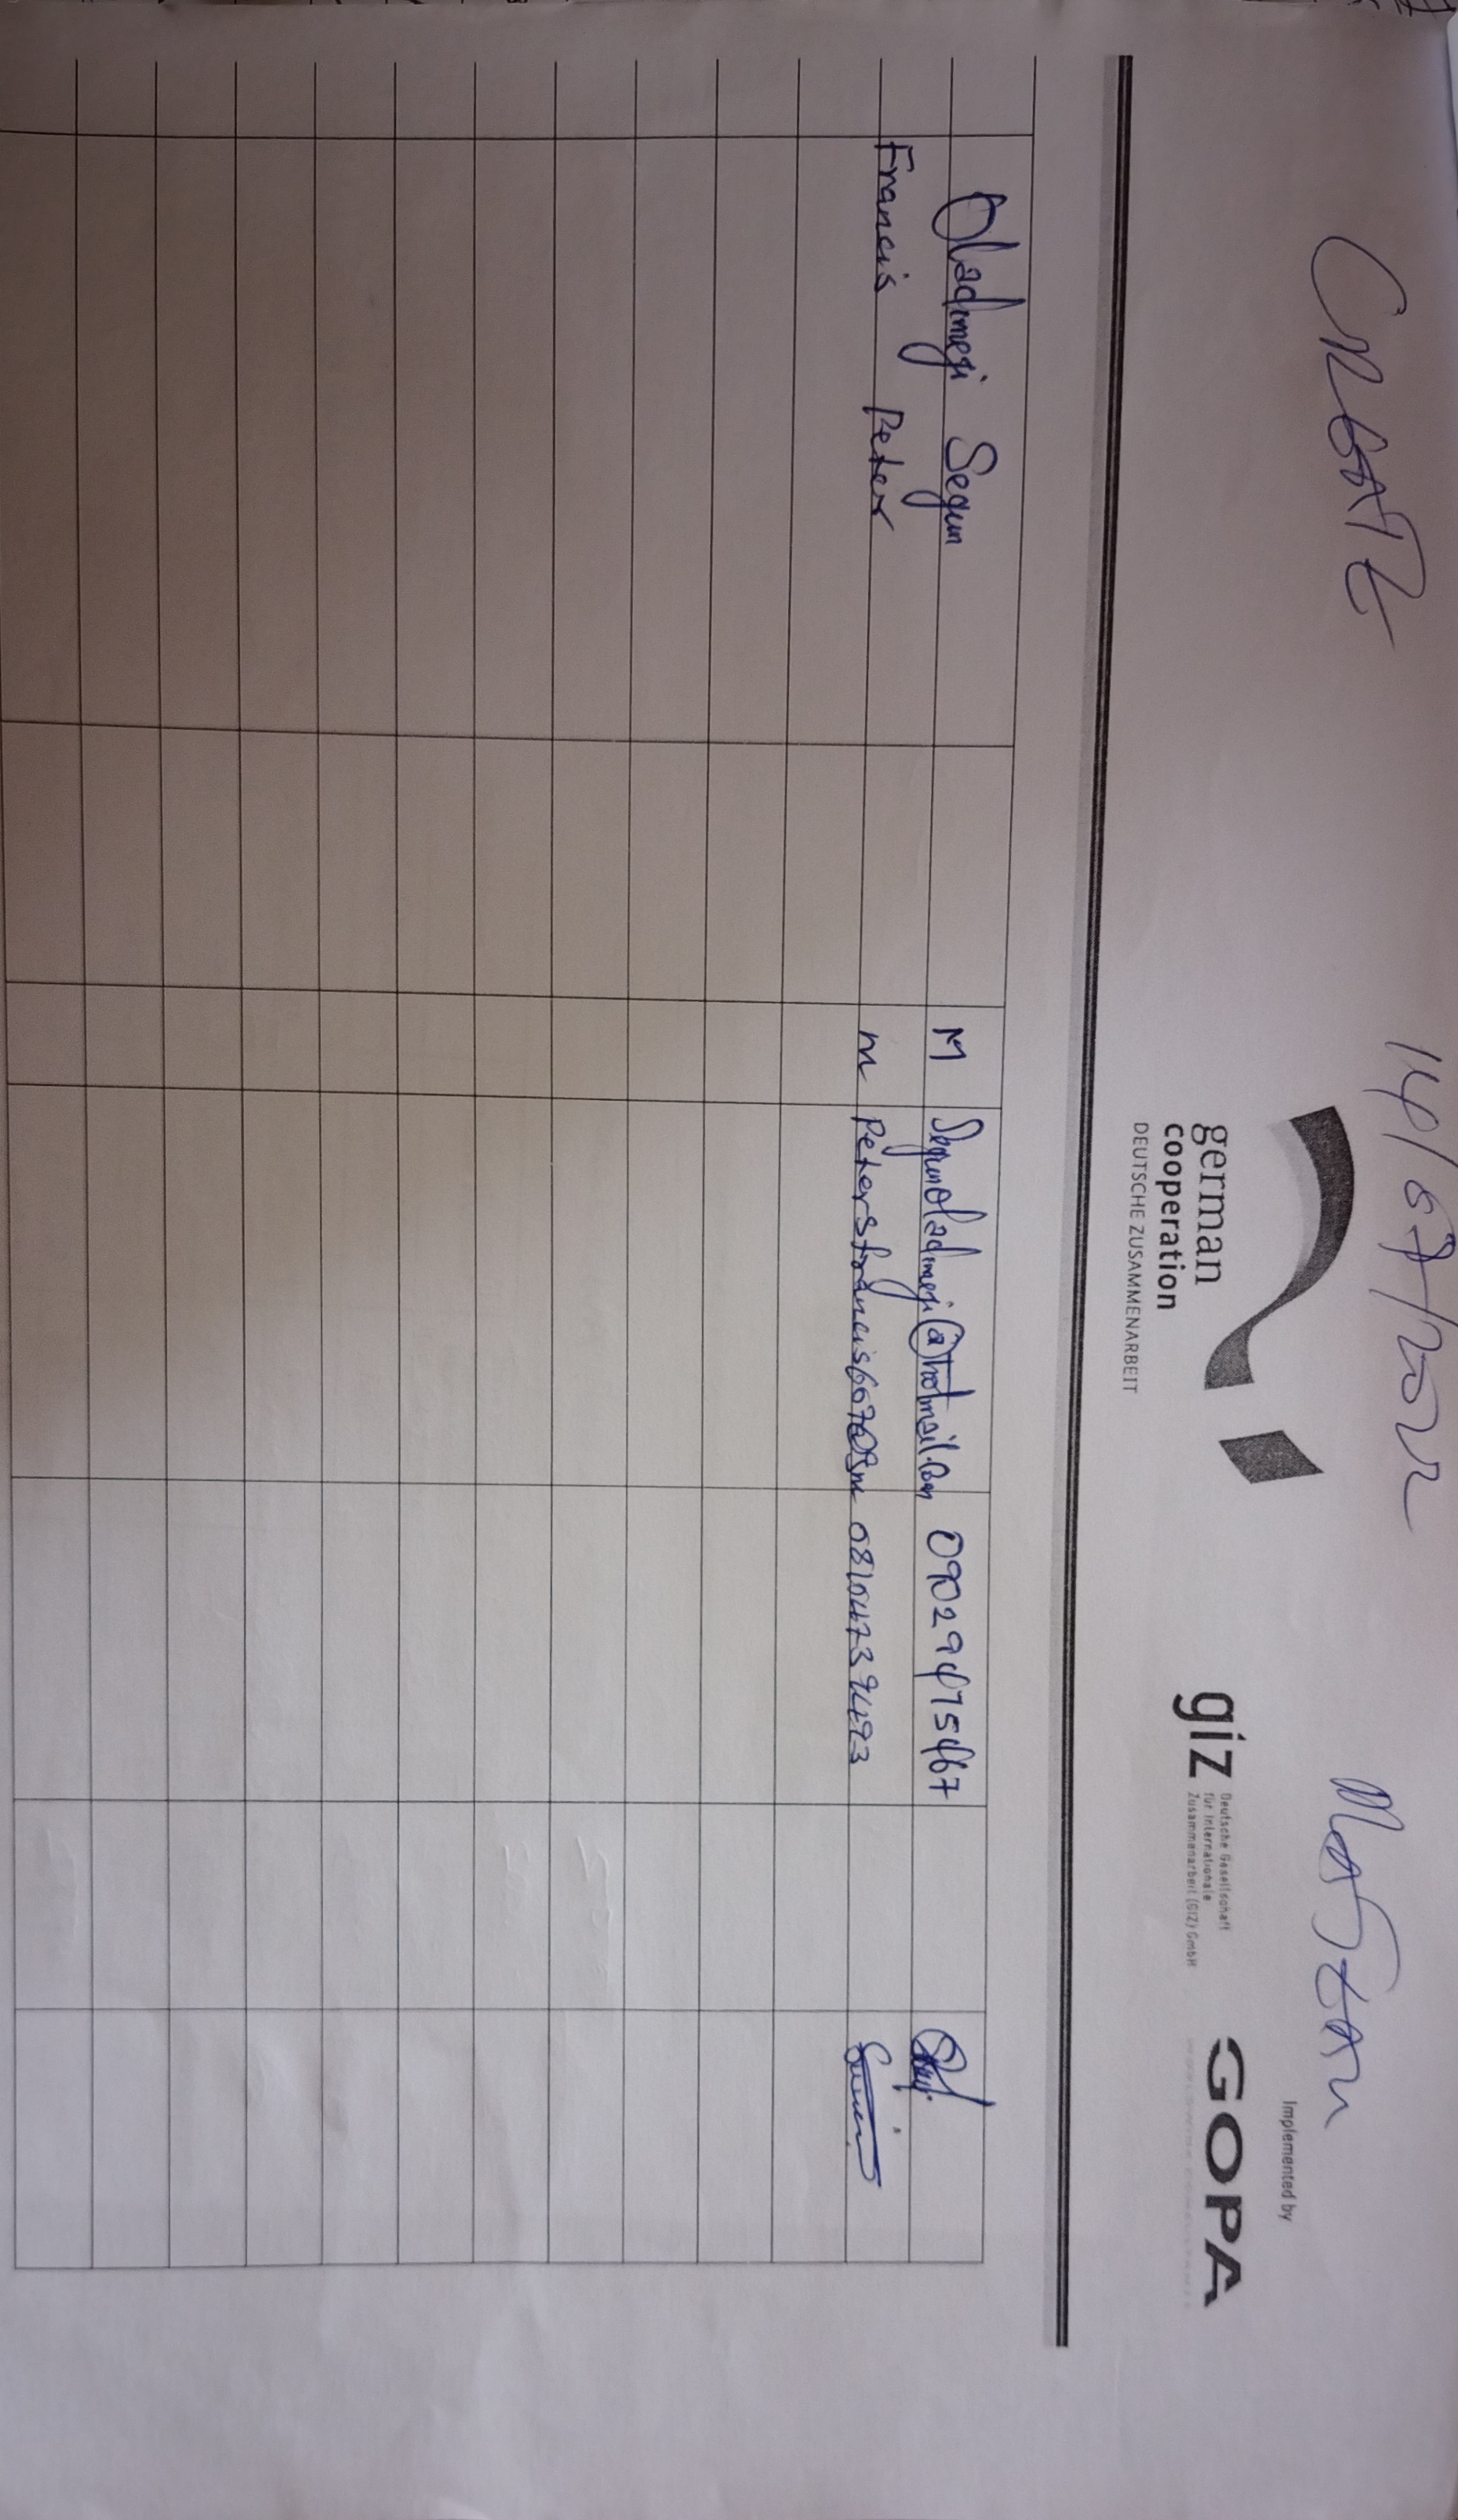 CREATE 14/07/2022
Implemented by
german
cooperation
DEUTSCHE ZUSAMMENARBEIT
giz Deutsche Gesellschaft
für Internationale
Zusammenarbeit (GIZ) GmbH
GOPA
WORLDWIDE CONSULTANTS
Oladimeji Segun M Segunoladimeji@hotmail.com 09029475467
Francis Peter m Petersfrancis667@gm